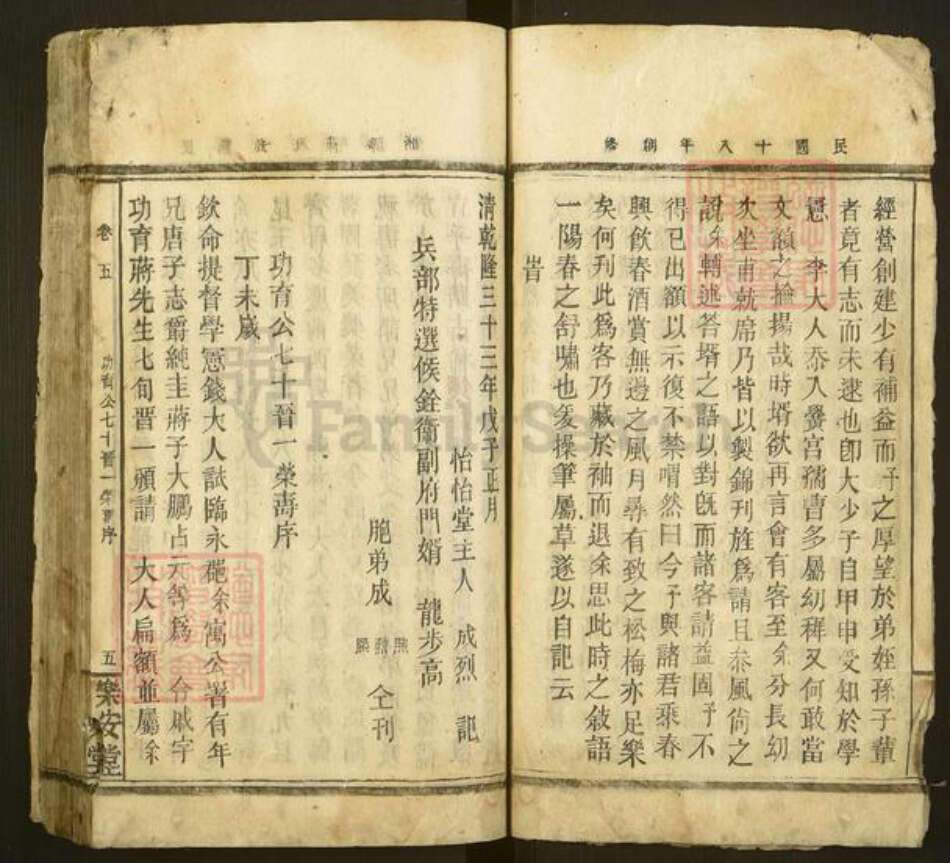 民國十八年創修
經營創建少有補益而予之厚望於弟姪孫子輩
者竟有志而未逮也卽大少子自甲申受知於學
憲 李大人忝入黌宮孺曹多屬幼稺又何敢當
文額之揄揚哉時壻欲再言會有客至余分長幼
次坐甫就席乃皆以製錦刊旌爲請且泰風尙之
說余轉述答壻之語以對旣而諸客請益固予不
得已出額以示復不禁喟然曰今予與諸君乘春
興飮春酒賞無邊之風月尋有致之松梅亦足樂
矣何刋此爲客乃藏於袖而退余思此時之敘語
一陽春之舒嘯也爰操筆屬草遂以自記云
旹
清乾隆三十三年戊子正月
怡怡堂主人 成烈 記
兵部特選候銓衞副府門婿 龍步高
胞弟成 仝刋
功育公七十晉一榮壽序
丁未歲
欽命提督學憲錢大人試臨永郡余寓公署有年
兄唐子志爵純圭蔣子大鵬占元等爲 令戚宇
功育蔣先生七旬晋一願請 大人扁額並屬余
卷五
功育公七十晋一榮壽序
五
樂安堂
FamilySearch